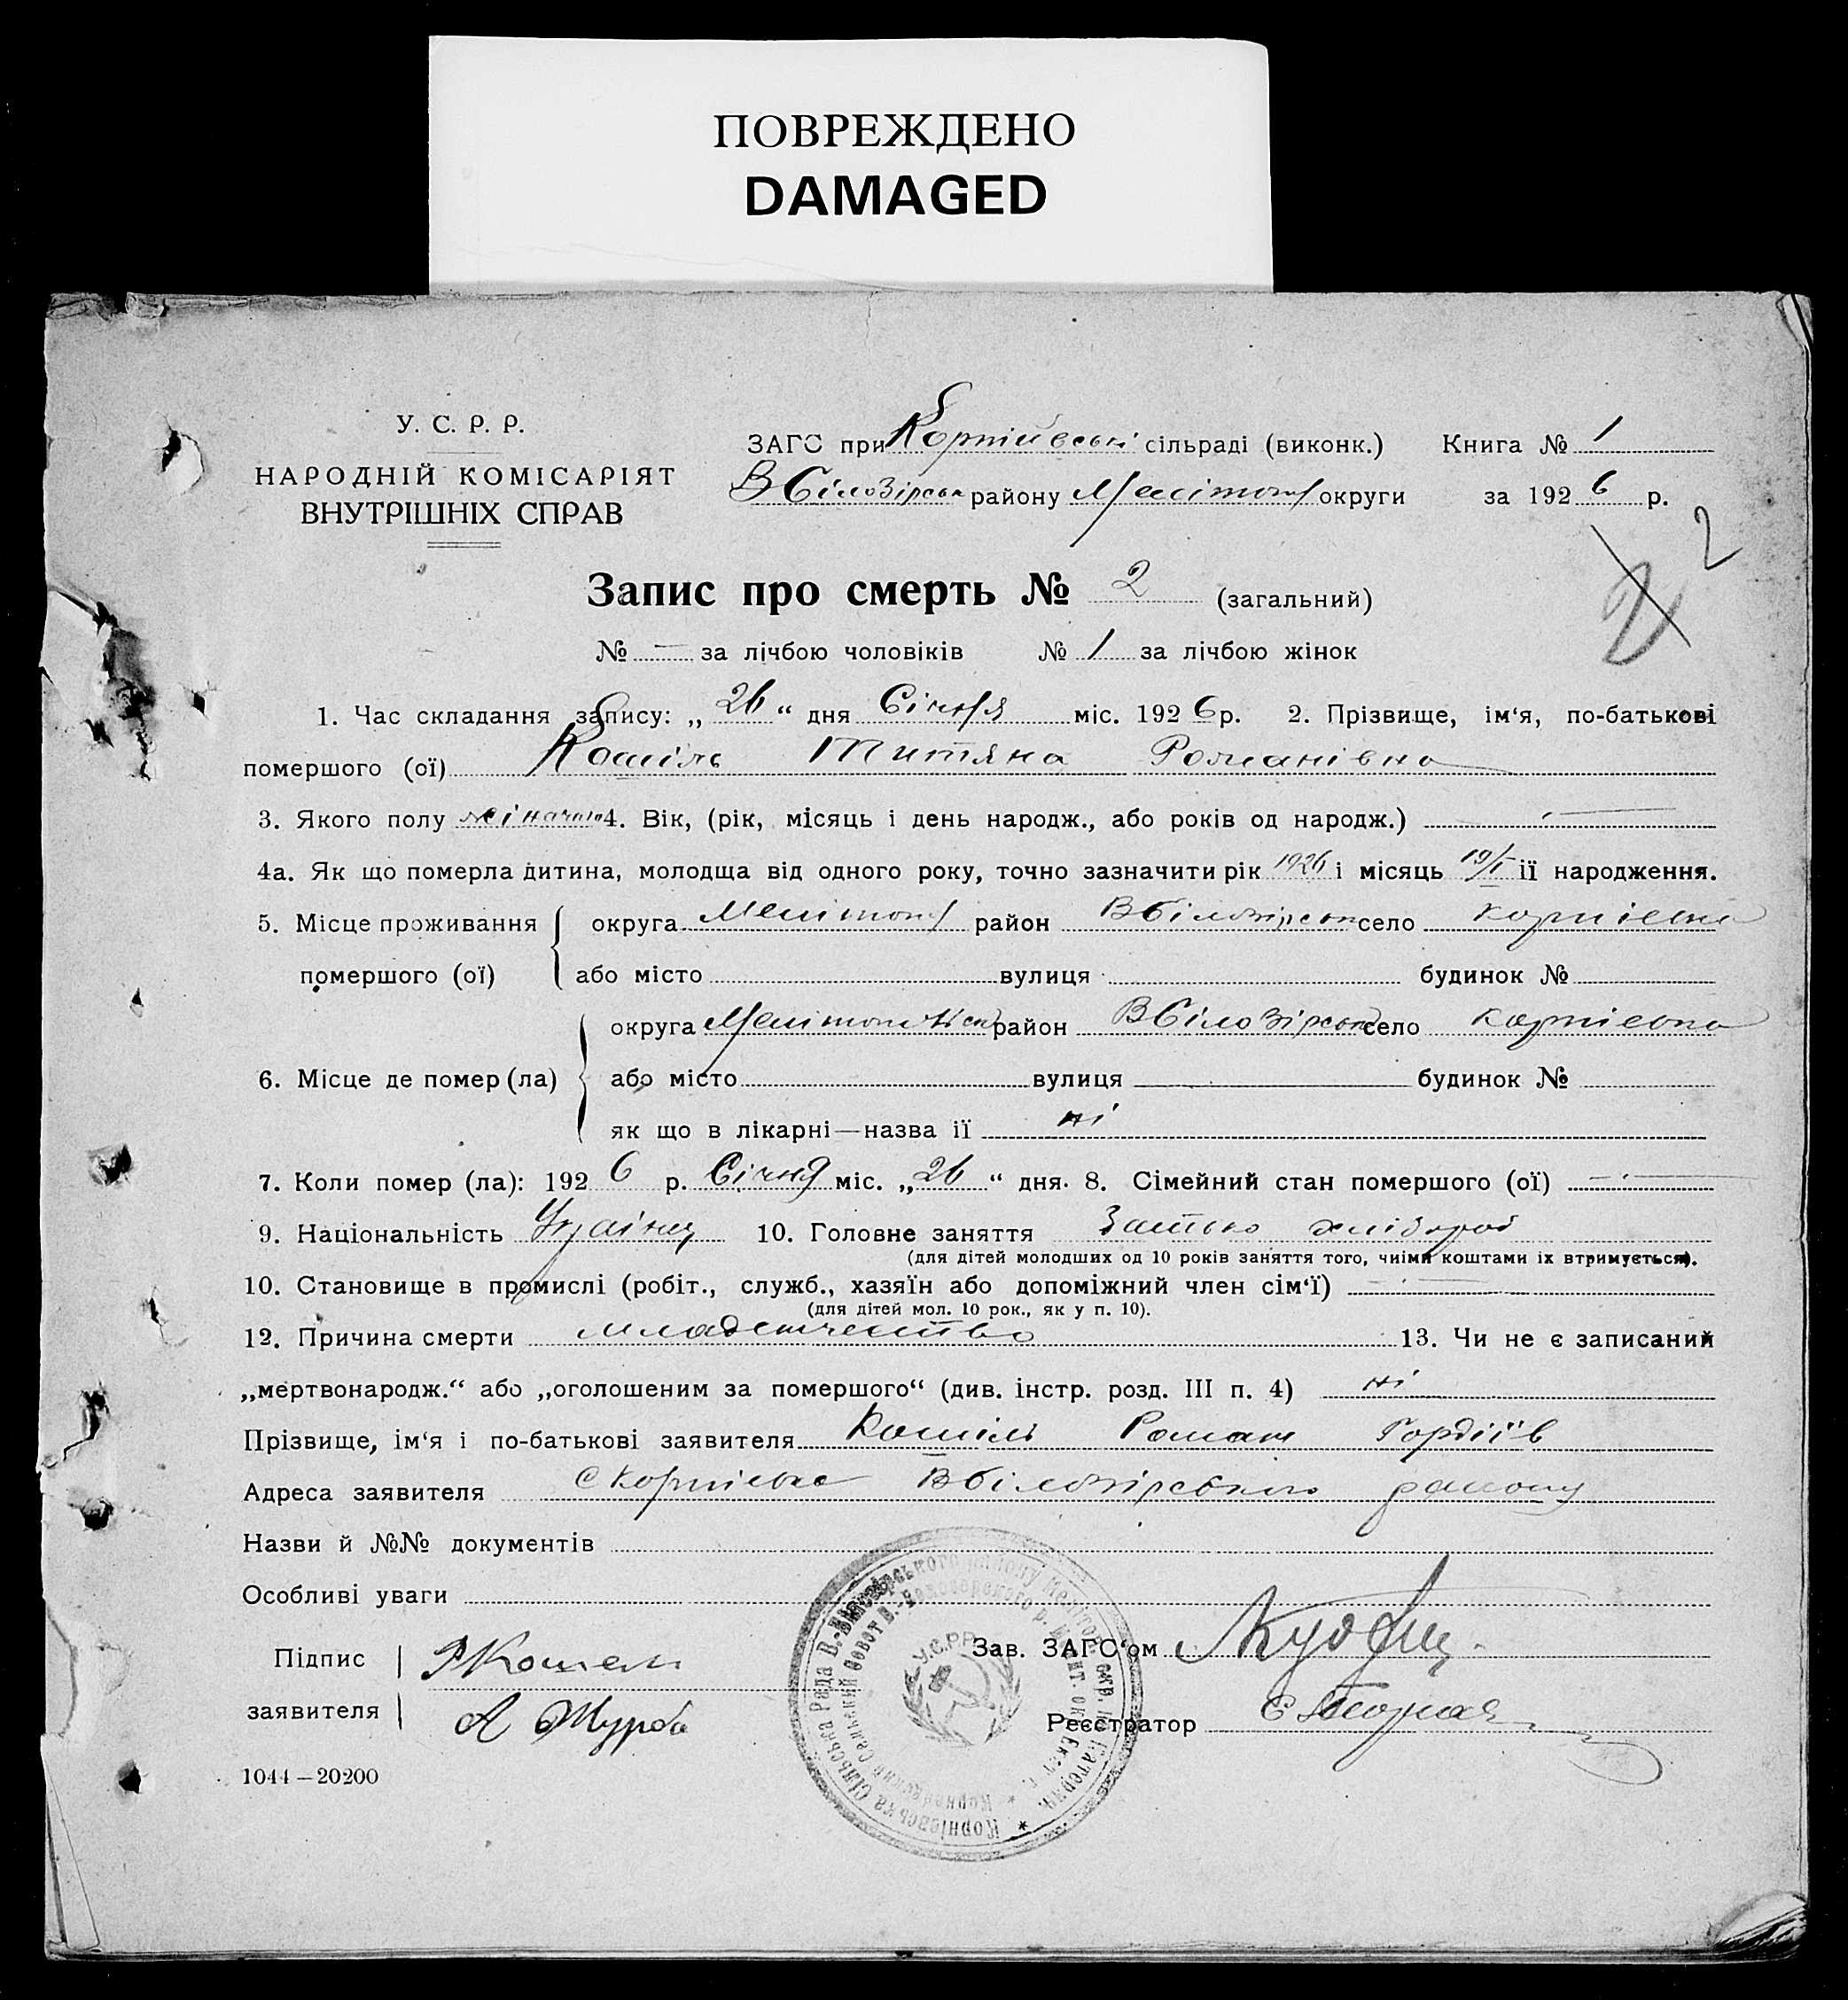 ПОВРЕЖДЕНО
DAMAGED
У. С. Р. Р.
НАРОДНІЙ КОМІСАРІЯТ
ВНУТРІШНІХ СПРАВ
ЗАГС при Корнійвські сільраді (виконк.) Книга № 1
ВБілозірськ району Мелітоп округи за 1926 р.
2
2
Запис про смерть № 2 (загальний)
№ — за лічбою чоловіків № 1 за лічбою жінок
1. Час складання запису: „26“ дня Січня міс. 1926 р. 2. Прізвище, ім‘я, по-батькові
помершого (ої) Кошіль Титяна Романівна
3. Якого полу жіночого 4. Вік, (рік, місяць і день народж., або років од народж.) —
4а. Як що померла дитина, молодша від одного року, точно зазначити рік 1926 і місяць 19/I її народження.
5. Місце проживання помершого (ої) округа Мелітоп район ВБілозірськ село Корнієвка
або місто вулиця будинок №
6. Місце де помер (ла) округа Мелітопільск район ВБілозірськ село Корнієвка
або місто вулиця будинок №
як що в лікарні—назва її ні
7. Коли помер (ла): 1926 р. Січня міс. „26“ дня. 8. Сімейний стан помершого (ої) —
9. Національність Україн 10. Головне заняття Батько хлібороб
(для дітей молодших од 10 років заняття того, чиїми коштами їх втримується).
10. Становище в промислі (робіт., служб., хазяїн або допоміжний член сім‘ї) —
(для дітей мол. 10 рок., як у п. 10).
12. Причина смерти младенчество 13. Чи не є записаний
„мертвонародж.“ або „оголошеним за помершого“ (див. інстр. розд. III п. 4) ні
Прізвище, ім‘я і по-батькові заявителя Кошіль Роман Гордіїв
Адреса заявителя с Корнієвка ВБілозірського району
Назви й №№ документів
Особливі уваги
Підпис заявителя РКошель
А Журба
Зав. ЗАГС‘ом
Реєстратор
Корнієвська Сільська Рада В.-Білозірського району Мелітоп. окр. на Катерин.
Сельский Совет В.-Белозерского р. Мелит. окр. Екат. г.
У.С.Р.Р.
1044—20200